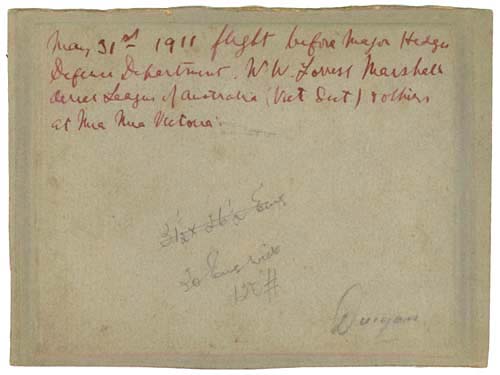 May 31st 1911 flight before Major Hedge
Defence Department. W. W. Forrest Marshall
Aerial League of Australia (Vict Sect) & others
at Mia Mia Victoria.
3½ x 2
To
Duigan